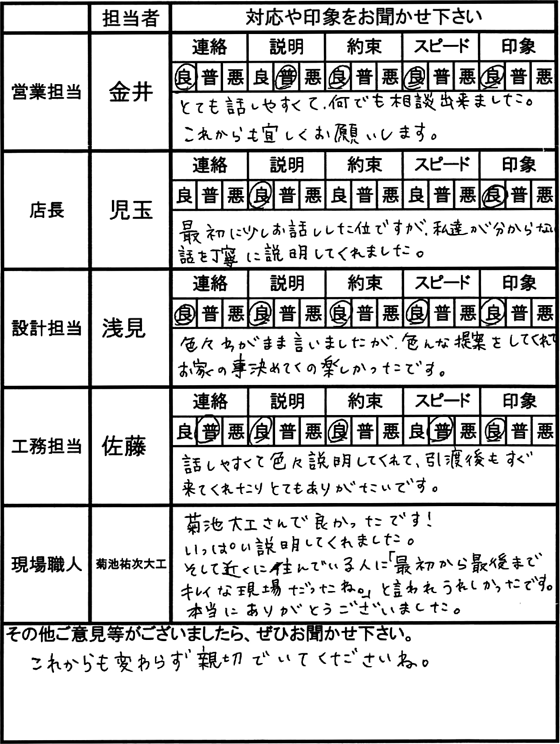 担当者 対応や印象をお聞かせ下さい
営業担当 金井
連絡 説明 約束 スピード 印象
良 普 悪 良 普 悪 良 普 悪 良 普 悪 良 普 悪
とても話しやすくて、何でも相談出来ました。
これからも宜しくお願いします。
店長 児玉
連絡 説明 約束 スピード 印象
良 普 悪 良 普 悪 良 普 悪 良 普 悪 良 普 悪
最初に少しお話しした位ですが、私達が分からない
話を丁寧に説明してくれました。
設計担当 浅見
連絡 説明 約束 スピード 印象
良 普 悪 良 普 悪 良 普 悪 良 普 悪 良 普 悪
色々わがまま言いましたが、色んな提案をしてくれて
お家の事決めてくの楽しかったです。
工務担当 佐藤
連絡 説明 約束 スピード 印象
良 普 悪 良 普 悪 良 普 悪 良 普 悪 良 普 悪
話しやすくて色々説明してくれて、引渡後もすぐ
来てくれたりとてもありがたいです。
現場職人 菊池祐次大工
菊池大工さんで良かったです!
いっぱい説明してくれました。
そして近くに住んでいる人に「最初から最後まで
キレイな現場だったね。」と言われうれしかったです。
本当にありがとうございました。
その他ご意見等がございましたら、ぜひお聞かせ下さい。
これからも変わらず親切でいてくださいね。